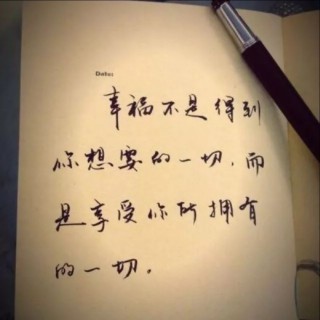 幸福不是得到
你想要的一切,而
是享受你所拥有
的一切。